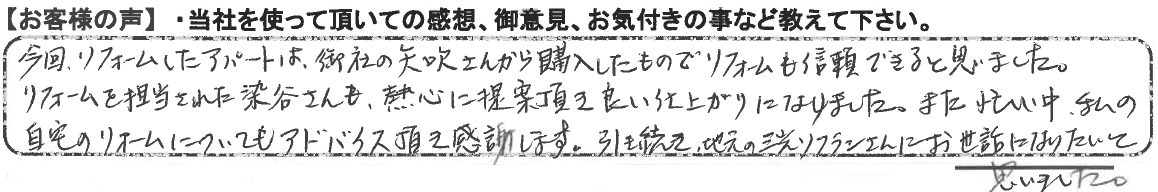 【お客様の声】・当社を使って頂いての感想、御意見、お気付きの事など教えて下さい。
今回、リフォームしたアパートは、御社の矢吹さんから購入したものでリフォームも信頼できると思いました。
リフォームを担当された染谷さんも、熱心に提案頂き良い仕上がりになりました。また忙しい中、私の
自宅のリフォームについてもアドバイス頂き感謝します。引き続き、地元の三光ソフランさんにお世話になりたいと
思いました。